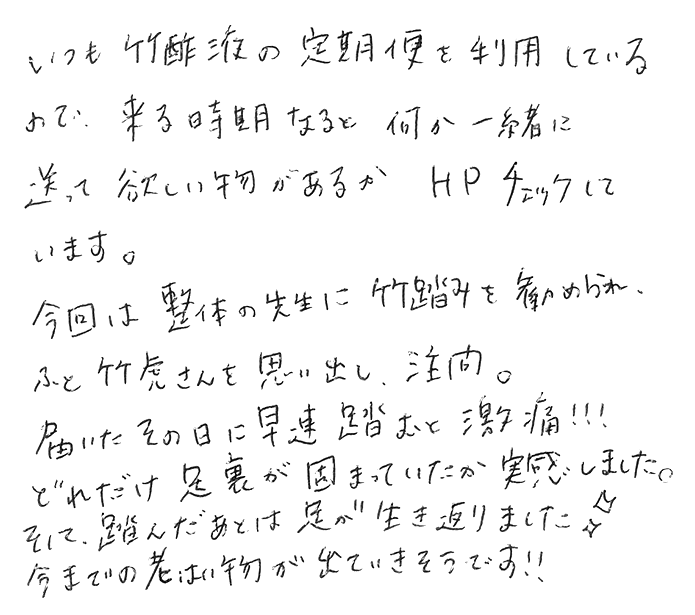 いつも 竹酢液の 定期便を 利用 している
ので、来る時期なると 何か 一緒に
送って 欲しい物があるか HP チェックして
います。
今回は 整体の先生に 竹踏みを 勧められ、
ふと 竹虎さんを 思い出し、注文。
届いた その日に 早速 踏むと 激痛!!!
どれだけ 足裏が 固まっていたか 実感しました。
そして、踏んだあとは 足が 生き返りました
今までの老はい物が 出ていきそうです!!